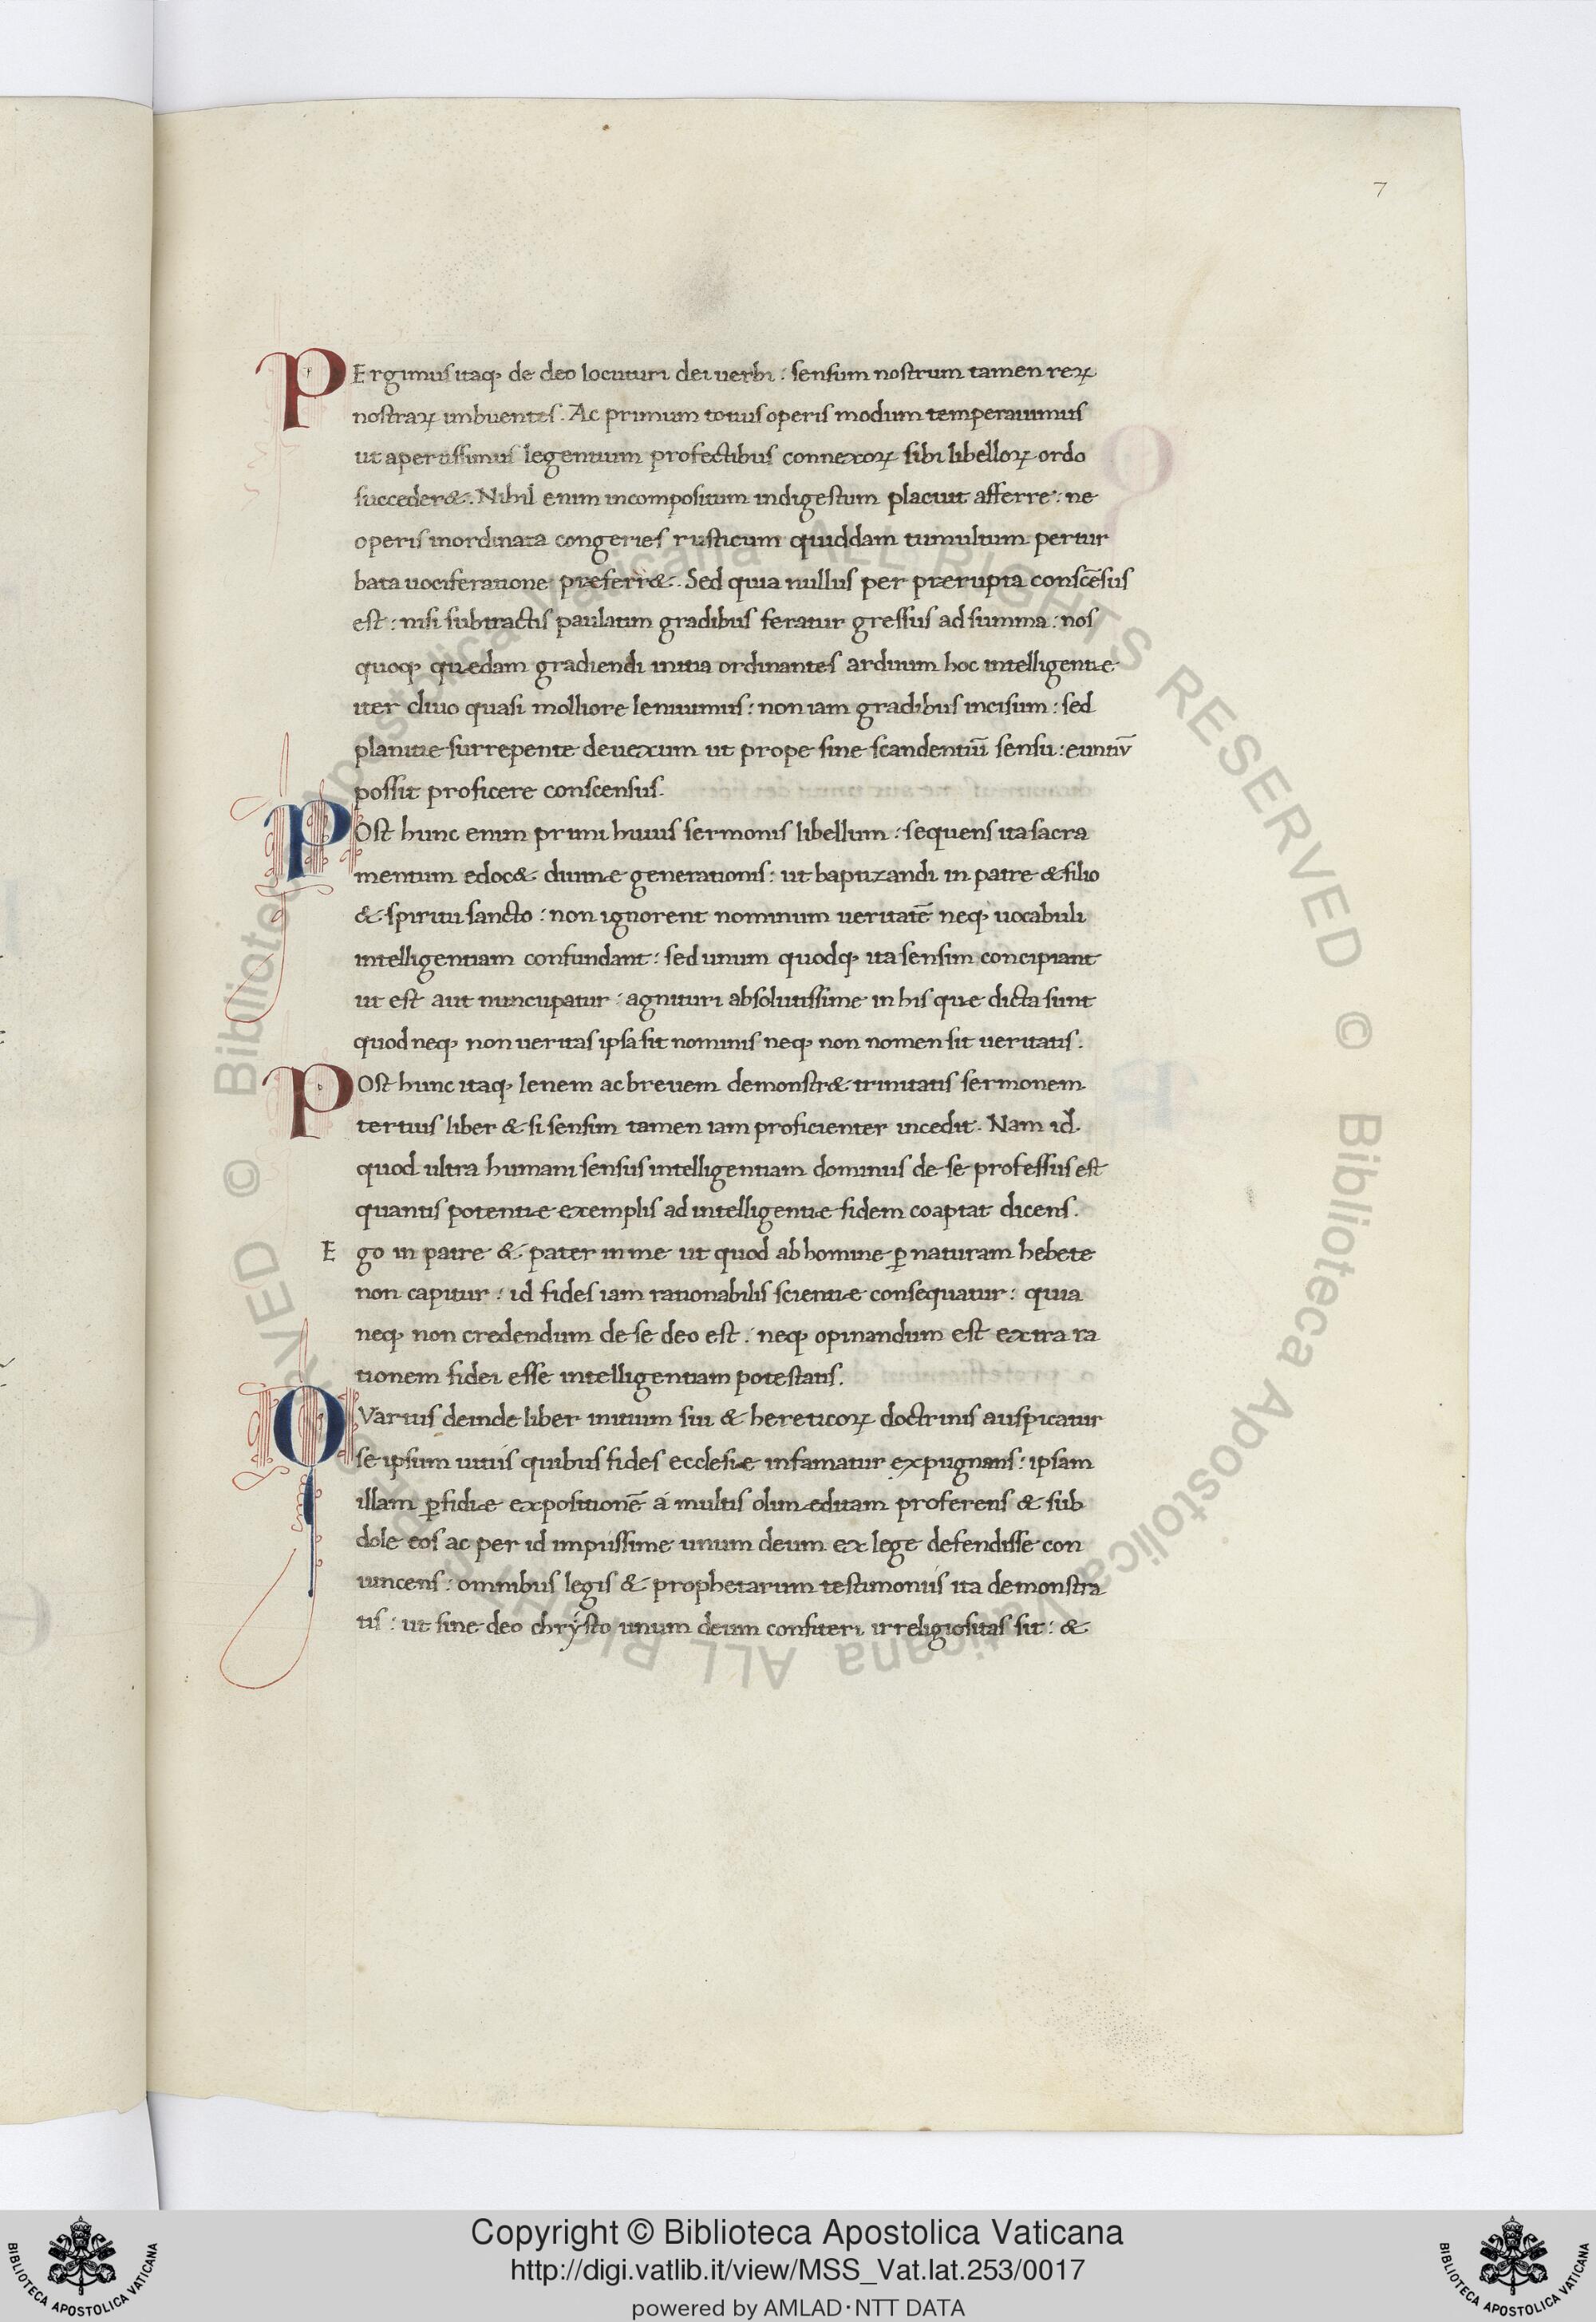 7
PErgimus itaq; de deo locuturi dei uerbi: sensum nostrum tamen reꝝ
nostraꝝ imbuentes. Ac primum totius operis modum temperauimus
ut aptissimus legentium profectibus connexoꝝ sibi libelloꝝ ordo
succeder&. Nihil enim incompositum indigestum placuit afferre: ne
operis inordinata congeries rusticum quiddam tumultum pertur
bata uociferatione preferr&. Sed quia nullus per prerupta conscēsus
est: nisi subtractis paulatim gradibus feratur gressus ad summa: nos
quoq; quędam gradiendi initia ordinantes arduum hoc intelligentię
iter cliuo quasi molliore leniuimus: non iam gradibus incisum: sed
planitie surrepente deuexum ut prope sine scandentiū sensu: euntiū
possit proficere conscensus.
POst hunc enim primi huius sermonis libellum: sequens ita sacra
mentum edoc& diuinę generationis: ut baptizandi in patre & filio
& spiritu sancto: non ignorent nominum ueritatē neq; uocabuli
intelligentiam confundant: sed unum quodq; ita sensim concipiant
ut est aut nuncupatur: agnituri absolutissime in his quę dicta sunt
quod neq; non ueritas ipsa sit nominis neq; non nomen sit ueritatis.
POst hunc itaq; lenem ac breuem demonstrę trinitatis sermonem
tertius liber & si sensim tamen iam proficienter incedit. Nam id
quod ultra humani sensus intelligentiam dominus de se professus est
quantis potentię exemplis ad intelligentię fidem coaptat dicens.
Ego in patre & pater in me ut quod ab homine ꝑ naturam hebete
non capitur: id fides iam rationabilis scientię consequatur: quia
neq; non credendum de se deo est: neq; opinandum est extra ra
tionem fidei esse intelligentiam potestatis.
QVartus deinde liber initium sui & hereticoꝝ doctrinis auspicatur
se ipsum uitiis quibus fides ecclesię infamatur expugnans: ipsam
illam ꝑfidię expositionē á multis olim editam proferens & sub
dole eos ac per id impiissime unum deum ex lege defendisse con
uincens: omnibus legis & prophetarum testimoniis ita demonstra
tis: ut sine deo chrẏsto unum deum confiteri irreligiositas sit: &
© Biblioteca Apostolica Vaticana ALL RIGHTS RESERVED © Biblioteca Apostolica Vaticana ALL RIGHTS RESERVED
Copyright © Biblioteca Apostolica Vaticana
http://digi.vatlib.it/view/MSS_Vat.lat.253/0017
powered by AMLAD·NTT DATA
BIBLIOTECA APOSTOLICA VATICANA
BIBLIOTECA APOSTOLICA VATICANA